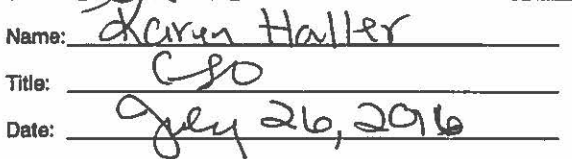 Name: Karen Haller
Title: CLO
Date: July 26, 2016